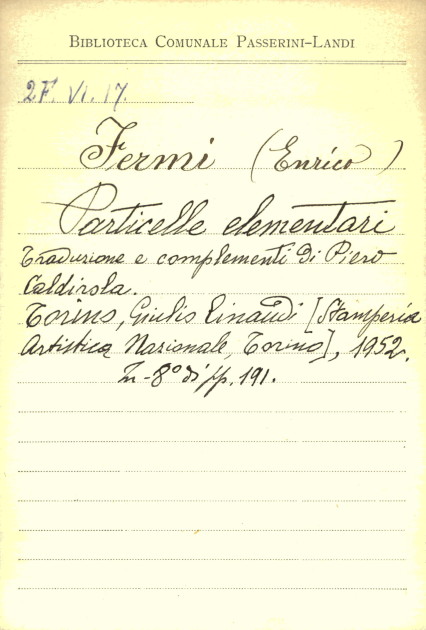 BIBLIOTECA COMUNALE PASSERINI-LANDI
2F. VI. 17.
Fermi (Enrico)
Particelle elementari
Traduzione e complementi di Piero
Caldirola.
Torino, Giulio Einaudi [Stamperia
Artistica Nazionale, Torino], 1952.
In-8° di pp. 191.